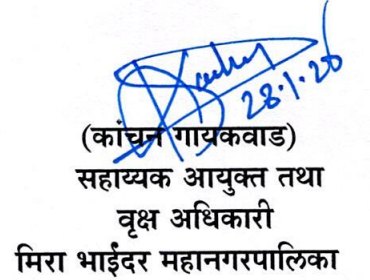 28.1.26
(कांचन गायकवाड)
सहाय्यक आयुक्त तथा
वृक्ष अधिकारी
मिरा भाईंदर महानगरपालिका